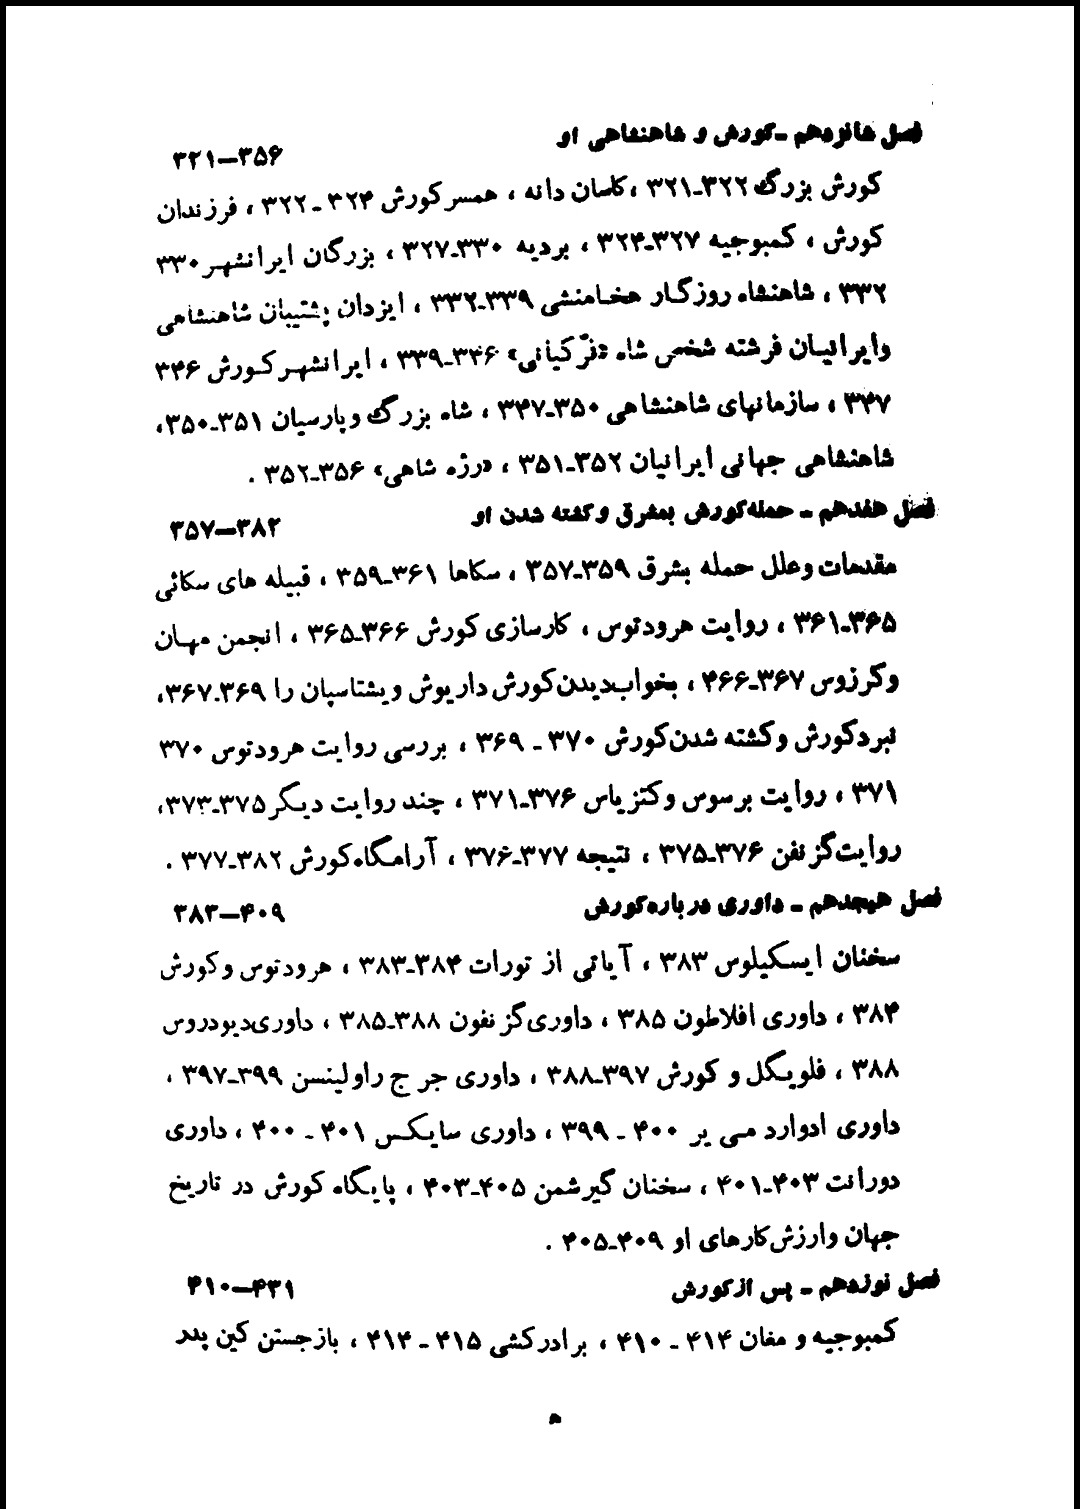 فصل شانزدهم ـ کورش و شاهنشاهی او
۳۲۱—۳۵۶
کورش بزرگ ۳۲۲ـ۳۲۱ ، کاسان دانه ، همسر کورش ۳۲۴ ـ ۳۲۲ ، فرزندان
کورش ، کمبوجیه ۳۲۷ـ۳۲۴ ، بردیه ۳۳۰ـ۳۲۷ ، بزرگان ایرانشهر ۳۳۰
۳۳۲ ، شاهنشاه روزگار هخامنشی ۳۳۹ـ۳۳۲ ، ایزدان پشتیبان شاهنشاهی
وایرانیان فرشته شخص شاه «فرّ کیانی» ۳۴۶ـ۳۳۹ ، ایرانشهر کورش ۳۴۶
۳۴۷ ، سازمانهای شاهنشاهی ۳۵۰ـ۳۴۷ ، شاه بزرگ و پارسیان ۳۵۱ـ۳۵۰،
شاهنشاهی جهانی ایرانیان ۳۵۲ـ۳۵۱ ، «رژه شاهی» ۳۵۶ـ۳۵۲ .
فصل هفدهم ـ حمله کورش بمشرق و کشته شدن او
۳۵۷—۳۸۲
مقدمات وعلل حمله بشرق ۳۵۹ـ۳۵۷ ، سکاها ۳۶۱ـ۳۵۹ ، قبیله های سکائی
۳۶۵ـ۳۶۱ ، روایت هرودتوس ، کارسازی کورش ۳۶۶ـ۳۶۵ ، انجمن مهان
وکرزوس ۳۶۷ـ۴۶۶ ، بخواب‌دیدن کورش داریوش ویشتاسپان را ۳۶۹ـ۳۶۷،
نبرد کورش و کشته شدن کورش ۳۷۰ ـ ۳۶۹ ، بررسی روایت هرودتوس ۳۷۰
۳۷۱ ، روایت برسوس وکتزیاس ۳۷۶ـ۳۷۱ ، چند روایت دیگر ۳۷۵ـ۳۷۳،
روایت گزنفن ۳۷۶ـ۳۷۵ ، نتیجه ۳۷۷ـ۳۷۶ ، آرامگاه کورش ۳۸۲ـ۳۷۷ .
فصل هیجدهم ـ داوری درباره کورش
۳۸۳—۴۰۹
سخنان ایسکیلوس ۳۸۳ ، آیاتی از تورات ۳۸۴ـ۳۸۳ ، هرودتوس و کورش
۳۸۴ ، داوری افلاطون ۳۸۵ ، داوری گزنفون ۳۸۸ـ۳۸۵ ، داوری دیودروس
۳۸۸ ، فلویگل و کورش ۳۹۷ـ۳۸۸ ، داوری جرج راولینسن ۳۹۹ـ۳۹۷ ،
داوری ادوارد می یر ۴۰۰ ـ ۳۹۹ ، داوری سایکس ۴۰۱ ـ ۴۰۰ ، داوری
دورانت ۴۰۳ـ۴۰۱ ، سخنان گیرشمن ۴۰۵ـ۴۰۳ ، پایگاه کورش در تاریخ
جهان وارزش کارهای او ۴۰۹ـ۴۰۵ .
فصل نوزدهم ـ پس از کورش
۴۱۰—۴۳۱
کمبوجیه و مغان ۴۱۴ ـ ۴۱۰ ، برادرکشی ۴۱۵ ـ ۴۱۴ ، بازجستن کین پدر
ه